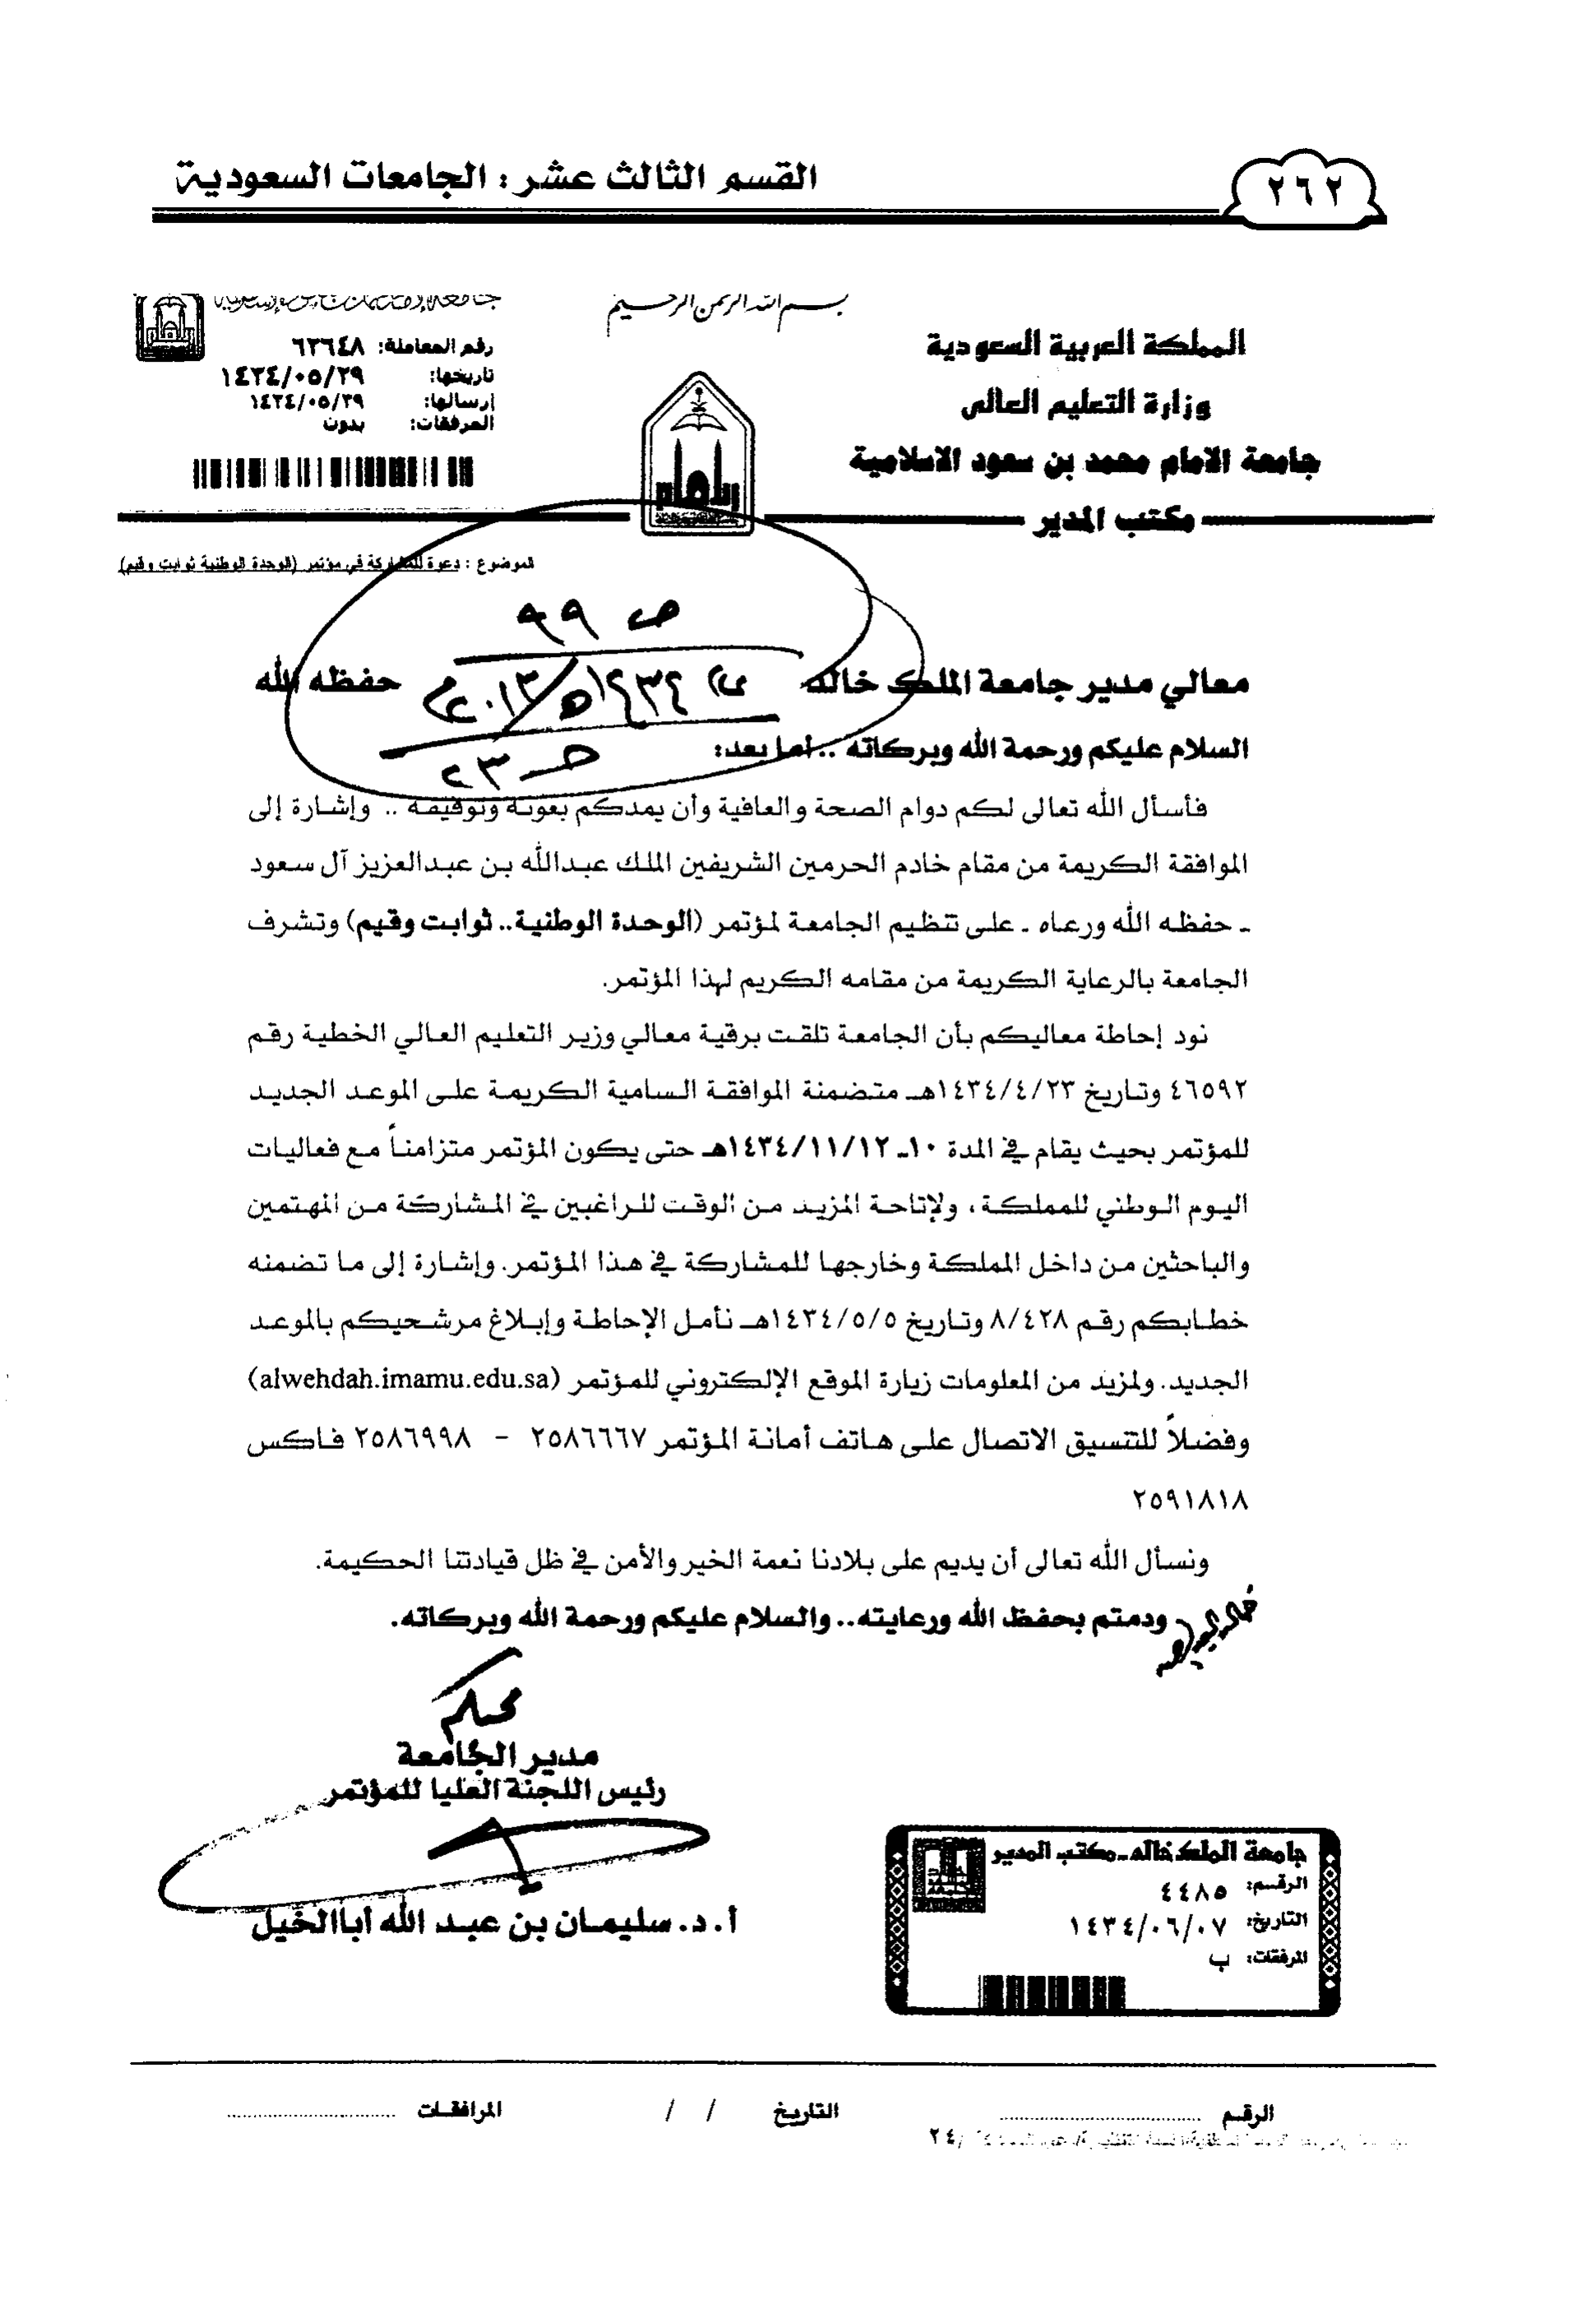 القسم الثالث عشر : الجامعات السعودية
٢٦٢
بسم الله الرحمن الرحيم
المملكة العربية السعودية
وزارة التعليم العالى
جامعة الامام محمد بن سعود الاسلامية
مكتب المدير
رقم المعاملة: ٦٣٦٤٨
تاريخها: ١٤٣٤/٠٥/٢٩
إرسالها: ١٤٣٤/٠٥/٢٩
المرفقات: بدون
الموضوع : دعوة للمشاركة في مؤتمر (الوحدة الوطنية ثوابت وقيم)
ص ٩٩
معالي مدير جامعة الملك خالد حفظه الله
السلام عليكم ورحمة الله وبركاته .. أما بعد:
فأسأل الله تعالى لكم دوام الصحة والعافية وأن يمدكم بعونه وتوفيقه .. وإشارة إلى
الموافقة الكريمة من مقام خادم الحرمين الشريفين الملك عبدالله بن عبدالعزيز آل سعود
ـ حفظه الله ورعاه ـ على تنظيم الجامعة لمؤتمر (الوحدة الوطنية.. ثوابت وقيم) وتشرف
الجامعة بالرعاية الكريمة من مقامه الكريم لهذا المؤتمر.
نود إحاطة معاليكم بأن الجامعة تلقت برقية معالي وزير التعليم العالي الخطية رقم
٤٦٥٩٢ وتاريخ ١٤٣٤/٤/٢٣هـ متضمنة الموافقة السامية الكريمة على الموعد الجديد
للمؤتمر بحيث يقام في المدة ١٠ـ ١٤٣٤/١١/١٢هـ حتى يكون المؤتمر متزامناً مع فعاليات
اليوم الوطني للمملكة، ولإتاحة المزيد من الوقت للراغبين في المشاركة من المهتمين
والباحثين من داخل المملكة وخارجها للمشاركة في هذا المؤتمر. وإشارة إلى ما تضمنه
خطابكم رقم ٨/٤٢٨ وتاريخ ١٤٣٤/٥/٥هـ نأمل الإحاطة وإبلاغ مرشحيكم بالموعد
الجديد. ولمزيد من المعلومات زيارة الموقع الإلكتروني للمؤتمر (alwehdah.imamu.edu.sa)
وفضلاً للتنسيق الاتصال على هاتف أمانة المؤتمر ٢٥٨٦٦٦٧ – ٢٥٨٦٩٩٨ فاكس
٢٥٩١٨١٨
ونسأل الله تعالى أن يديم على بلادنا نعمة الخير والأمن في ظل قيادتنا الحكيمة.
ودمتم بحفظ الله ورعايته.. والسلام عليكم ورحمة الله وبركاته.
مدير الجامعة
رئيس اللجنة العليا للمؤتمر
أ. د. سليمان بن عبد الله أباالخيل
جامعة الملك خالد-مكتب المدير
الرقم: ٤٤٨٥
التاريخ: ١٤٣٤/٠٦/٠٧
المرفقات: ب
الرقم التاريخ / / المرافقات